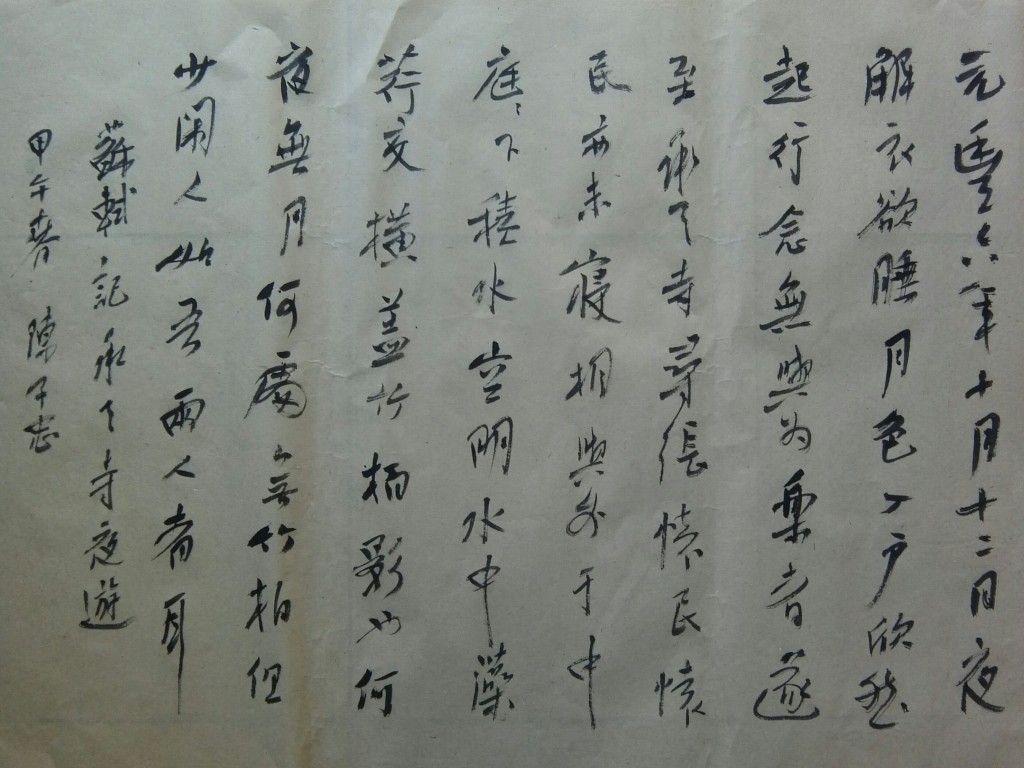 元豐六年十月十二日夜
解衣欲睡月色入户欣然
起行念無與为樂者遂
至承天寺尋張懷民懷
民亦未寢相與步于中
庭〻下積水空明水中藻
荇交橫蓋竹柏影也何
夜無月何處無竹柏但
少闲人如吾兩人者耳
蘇軾記承天寺夜遊
甲午春 陳子志